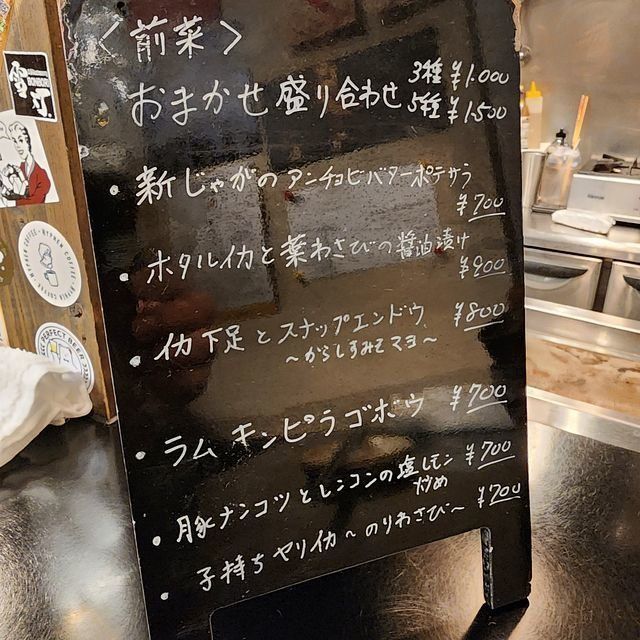 <前菜>
おまかせ盛り合わせ 3種 ¥1.000
5種 ¥1.500
・新じゃがのアンチョビバターポテサラ
¥700
・ホタルイカと葉わさびの醤油漬け
¥900
・イカ下足とスナップエンドウ ¥800
～からしすみそマヨ～
・ラムキンピラゴボウ ¥700
・豚ナンコツとレンコンの塩レモン炒め ¥700
・子持ちヤリイカ～のりわさび～ ¥700